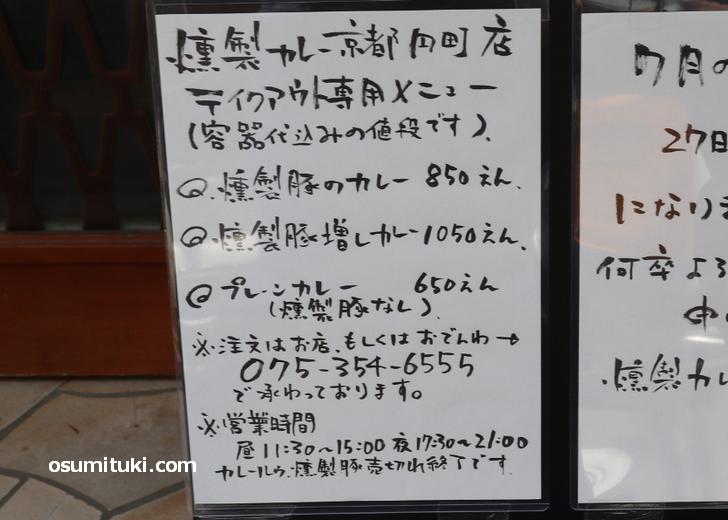 燻製カレー京都円町店
テイクアウト専用メニュー
(容器代込みの値段です)、
@.燻製豚のカレー 850えん、
@.燻製豚増しカレー1050えん、
@プレーンカレー 650えん
(燻製豚なし)、
※注文はお店、もしくはおでんわ→
075-354-6555
で承わっております。
※営業時間
昼11:30~15:00 夜17:30~21:00
カレールウ、燻製豚売切れ終了です。
7月の
27日
になりま
何卒よろ
申
燻製カレ
osumituki.com